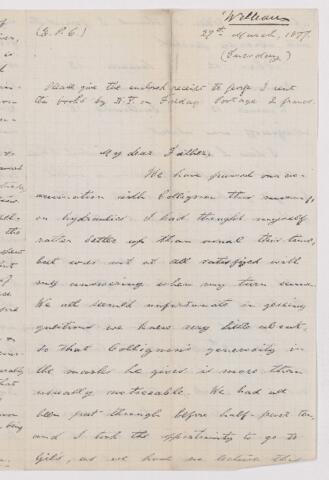 William
(E.P.C)
27th March, 1877.
(Tuesday)
Please give the enclosed receipt to I sent
the books by on Friday. Postage 2 francs.
My dear Father,
We have passed our ex-
amination with Collignon this morning
on hydraulics. I had thought myself
rather better up than usual this time,
but was not at all satisfied with
my answering when my turn came.
We all seemed unfortunate in getting
questions we knew very little about,
so that Collignon's generosity in
the marks he gives is more than
usually noticeable. We had all
been put through before half-past ten,
and I took the opportunity to go to
Gill's, as we have no lecture this